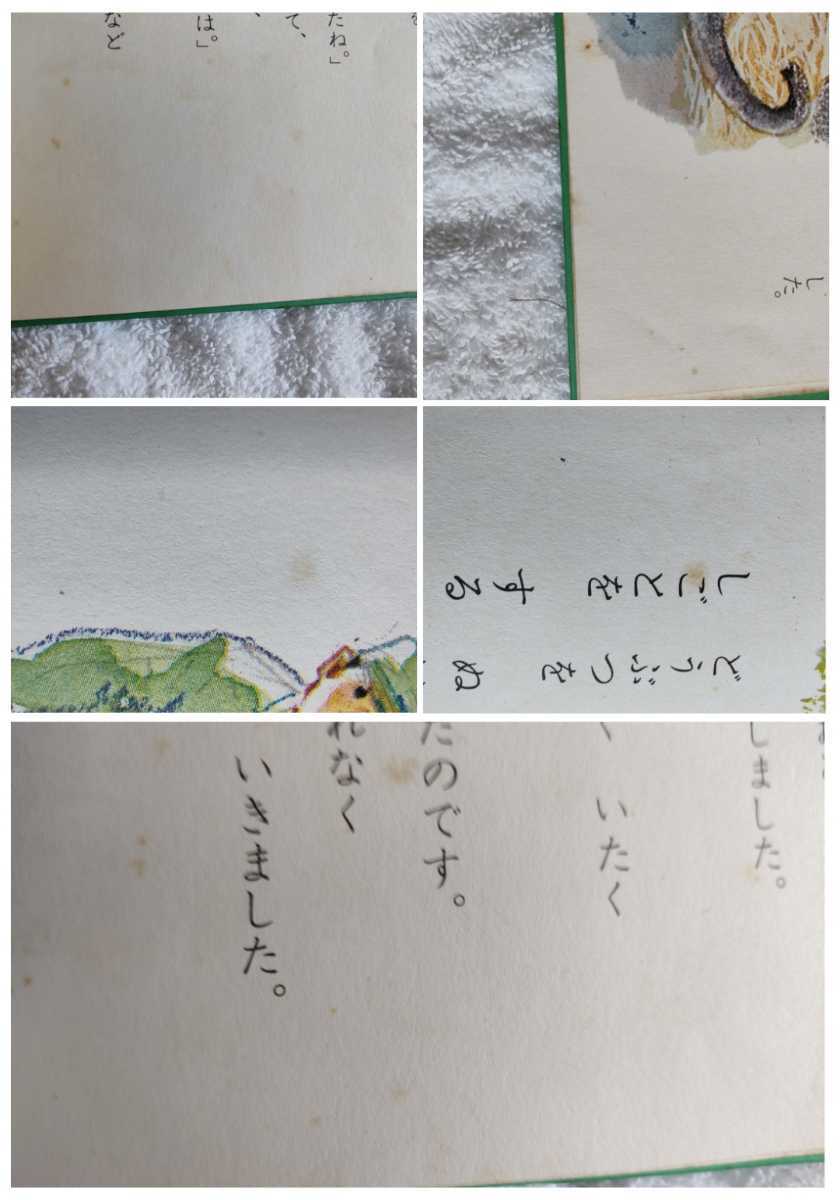 たね。」
て、
、
は。」
など
した。
どうぶつを ぬ
しごとを する
しました。
く いたく
たのです。
れなく
いきました。